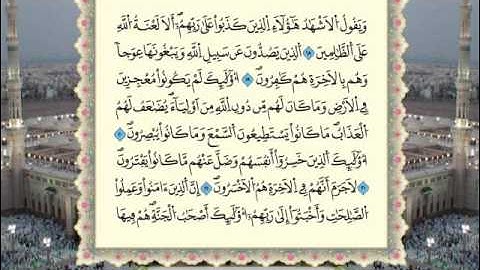 وَيَقُولُ الْأَشْهَٰدُ هَٰٓؤُلَآءِ الَّذِينَ كَذَبُوا۟ عَلَىٰ رَبِّهِمُۥٓ أَلَا لَعْنَةُ اللَّهِ
عَلَى الظَّٰلِمِينَ ١٨ الَّذِينَ يَصُدُّونَ عَن سَبِيلِ اللَّهِ وَيَبْغُونَهَا عِوَجًا
وَهُم بِالْآخِرَةِ هُمْ كَٰفِرُونَ ١٩ أُو۟لَٰٓئِكَ لَمْ يَكُونُوا۟ مُعْجِزِينَ
فِي الْأَرْضِ وَمَا كَانَ لَهُم مِّن دُونِ اللَّهِ مِنْ أَوْلِيَآءَ يُضَٰعَفُ لَهُمُ
الْعَذَابُ مَا كَانُوا۟ يَسْتَطِيعُونَ السَّمْعَ وَمَا كَانُوا۟ يُبْصِرُونَ ٢٠
أُو۟لَٰٓئِكَ الَّذِينَ خَسِرُوٓا۟ أَنفُسَهُمْ وَضَلَّ عَنْهُم مَّا كَانُوا۟ يَفْتَرُونَ ٢١
لَا جَرَمَ أَنَّهُمْ فِي الْآخِرَةِ هُمُ الْأَخْسَرُونَ ٢٢ إِنَّ الَّذِينَ ءَامَنُوا۟ وَعَمِلُوا۟
الصَّٰلِحَٰتِ وَأَخْبَتُوٓا۟ إِلَىٰ رَبِّهِمُۥٓ أُو۟لَٰٓئِكَ أَصْحَٰبُ الْجَنَّةِ هُمْ فِيهَا